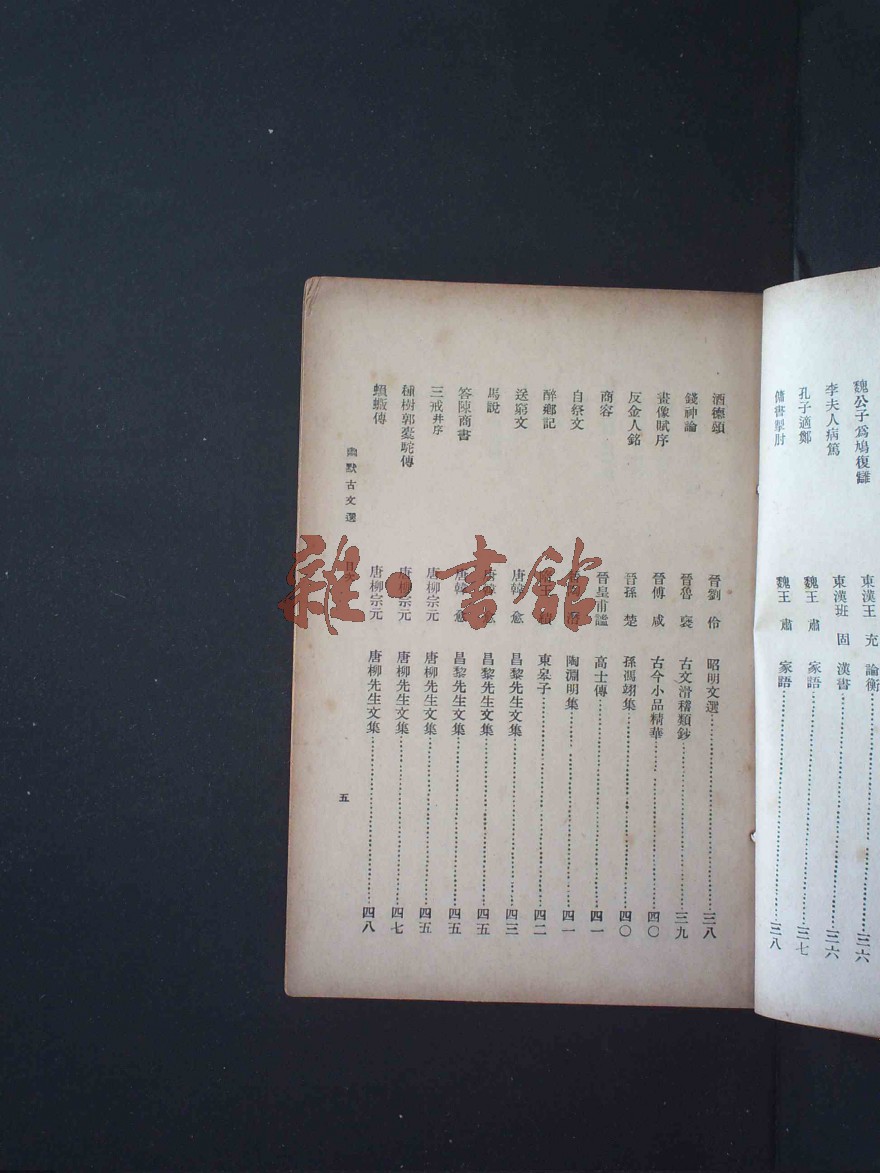 魏公子爲鳩復讎 東漢王 充 論衡 三六
李夫人病篤 東漢班 固 漢書 三六
孔子適鄭 魏王 肅 家語 三七
傭書掣肘 魏王 肅 家語 三八
酒德頌 晉劉 伶 昭明文選 三八
錢神論 晉魯 褒 古文滑稽類鈔 三九
畫像賦序 晉傅 咸 古今小品精華 四〇
反金人銘 晉孫 楚 孫馮翊集 四〇
商容 晉皇甫謐 高士傳 四一
自祭文 陶淵明集 四一
醉鄉記 東皋子 四二
送窮文 唐韓 愈 昌黎先生文集 四三
馬說 唐韓 愈 昌黎先生文集 四五
答陳商書 唐韓 愈 昌黎先生文集 四五
三戒并序 唐柳宗元 唐柳先生文集 四五
種樹郭橐駝傳 唐柳宗元 唐柳先生文集 四七
蝜蝂傳 唐柳宗元 唐柳先生文集 四八
幽默古文選 目次 五
雜·書館